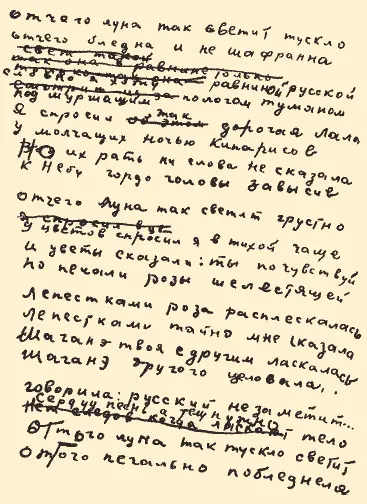 отчего луна так светит тускло
отчего бледна и не шафранна
свет такой
так она в равнине только
словно я хожу равниной русской
под шуршащим пологам тумяном
так
Я спросил об этом дорогая Лала
У молчащих ночью Кипарисов
Но их рать ни слова не сказала
К Небу гордо головы завысив
отчего Луна так светит грустно
я спросил
У цветов спросил я в тихой чаще
И цветы сказали: ты почувствуй
По печали розы шелестящей
Лепестками роза расплескалась
Лепестками тайно мне сказала
Шаганэ твоя с другим ласкалась
Шаганэ другого целовала,..
говорила: русский не заметит...
Сердцу песнь а
тело
Оттого луна так тускло светит
Оттого печально побледнела